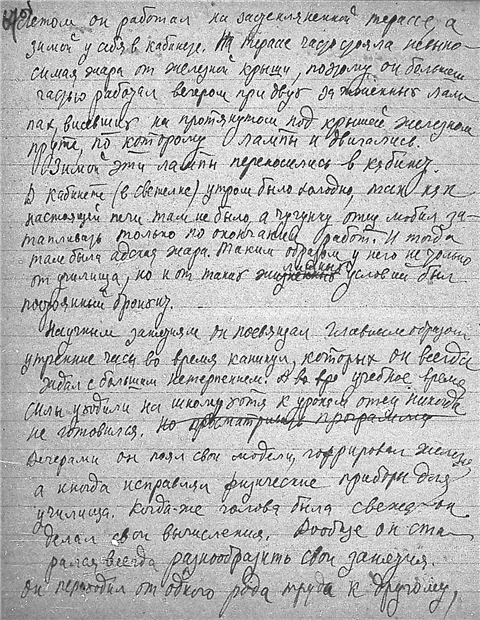 Летом он работал на застекляненной терассе, а
зимой у себя в кабинете. На терасе часто стояла невыно-
симая жара от железной крыши, поэтому он большей
частью работал вечером при двух зажженных лам-
пах, висевших на протянутом под крышей железном
пруте, по которому лампы и двигались.
Зимой эти лампы переносились в кабинет.
В кабинете (в светелке) утром было холодно, так как
настоящей печи там не было, а чугунку отец любил за-
тапливать только по окончании работ. И тогда
там была адская жара. Таким образом у него не только
от училища, но и от таких жизненных условий был
постоянный бронхит.
Научным занятиям он посвящал главным образом
утренние часы во время каникул, которых он всегда
ждал с большим нетерпением. А во вре учебное время
силы уходили на школу хотя к урокам отец никогда
не готовился. Но просматривать программы
Вечерами он паял свои модели, гоффрировал железо
а иногда исправлял физические приборы для
училища. Когда-же голова была свежа он
делал свои вычисления. Вообще он ста-
рался всегда разнообразить свои занятия.
Он переходил от одного рода труда к другому,